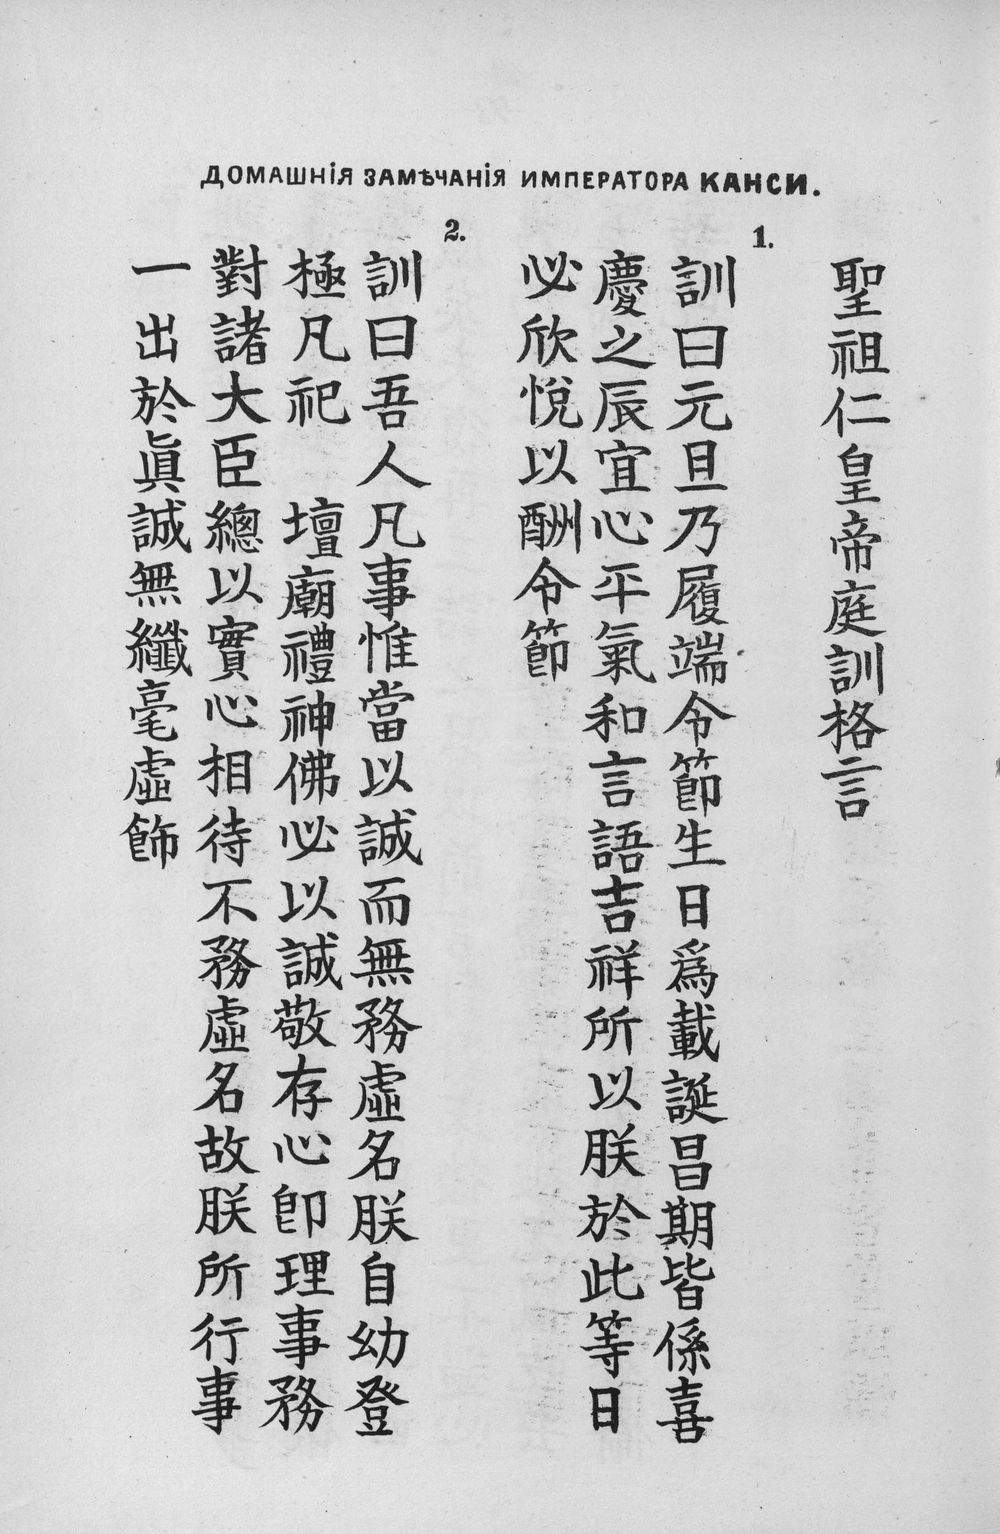 ДОМАШНІЯ ЗАМѢЧАНІЯ ИМПЕРАТОРА КАНСИ.
聖祖仁皇帝庭訓格言
1.
訓曰元旦乃履端令節生日爲載誕昌期皆係喜
慶之辰宜心平氣和言語吉祥所以朕於此等日
必欣悅以酬令節
2.
訓曰吾人凡事惟當以誠而無務虛名朕自幼登
極凡祀 壇廟禮神佛必以誠敬存心卽理事務
對諸大臣總以實心相待不務虛名故朕所行事
一出於眞誠無纖毫虛飾